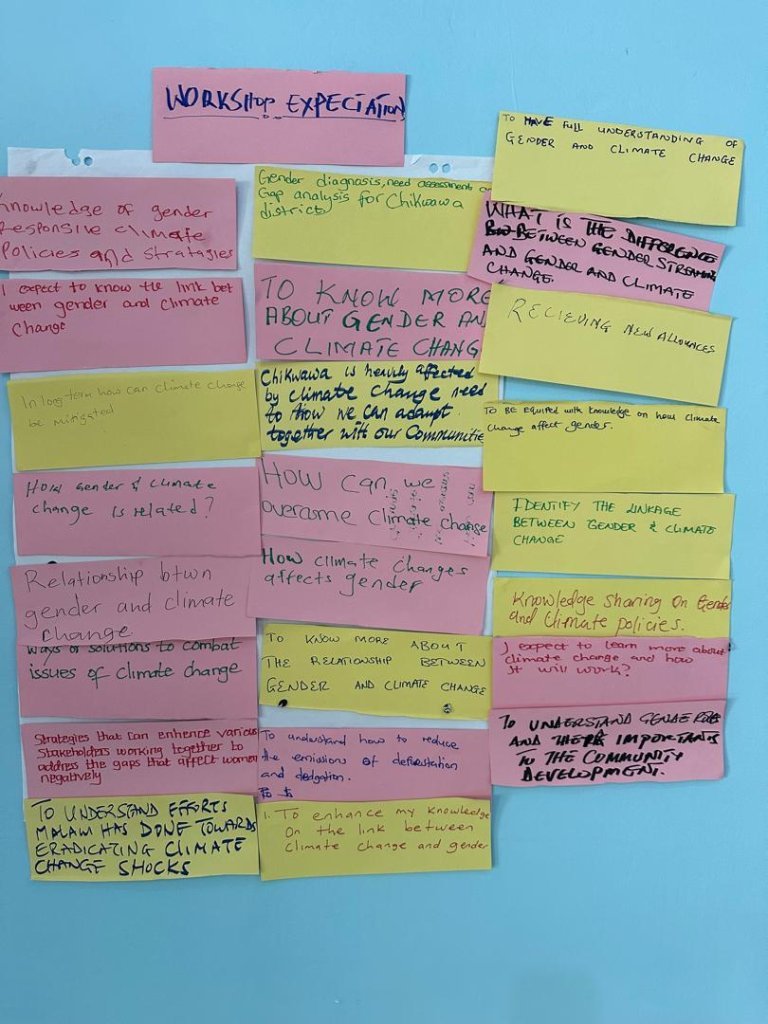 WORKSHOP EXPECTATION
Knowledge of gender
Responsive climate
Policies and stratagies
I expect to know the link bet
ween gender and climate
Change
In long term how can climate change
be mitigated
How Gender & climate
change is related?
Relationship btwn
gender and climate
change
Ways or solutions to combat
issues of climate change
Strategies that can enhance various
Stakeholders working together to
address the gaps that affect women
negatively
TO UNDERSTAND EFFORTS
MALAWI HAS DONE TOWARDS
ERADICATING CLIMATE
CHANGE SHOCKS
Gender diagnosis, need assessment
Gap analysis for Chikwawa
district
TO KNOW MORE
ABOUT GENDER AN
CLIMATE CHANG
Chikwawa is heavily affected
by climate change need
to how we can adapt
together with our Communitie
How can we
overcome climate change
How climate changes
affects gender
TO KNOW MORE ABOUT
THE RELATIONSHIP BETWEEN
GENDER AND CLIMATE CHANGE
To understand how to reduce
the emissions of deforestation
and
1. To enhance my knowledge
on the link between
climate change and gender
TO HAVE FULL UNDERSTANDING OF
GENDER AND CLIMATE CHANGE
WHAT IS THE DIFFERENCE
BETWEEN GENDER STREAMING
AND GENDER AND CLIMATE
CHANGE.
RECIEVING NEW ALLOWACES
TO BE EQUIPED with knowledge on how climate
change affect gender.
IDENTIFY THE LINKAGE
BETWEEN GENDER & CLIMATE
CHANGE
Knowledge sharing on Gender
and climate policies.
I expect to learn more about
climate change and how
it will work?
TO UNDERSTAND GENDE ROLES
AND THERE IMPORTANTS
TO THE COMMUNITY
DEVELOPMENT.